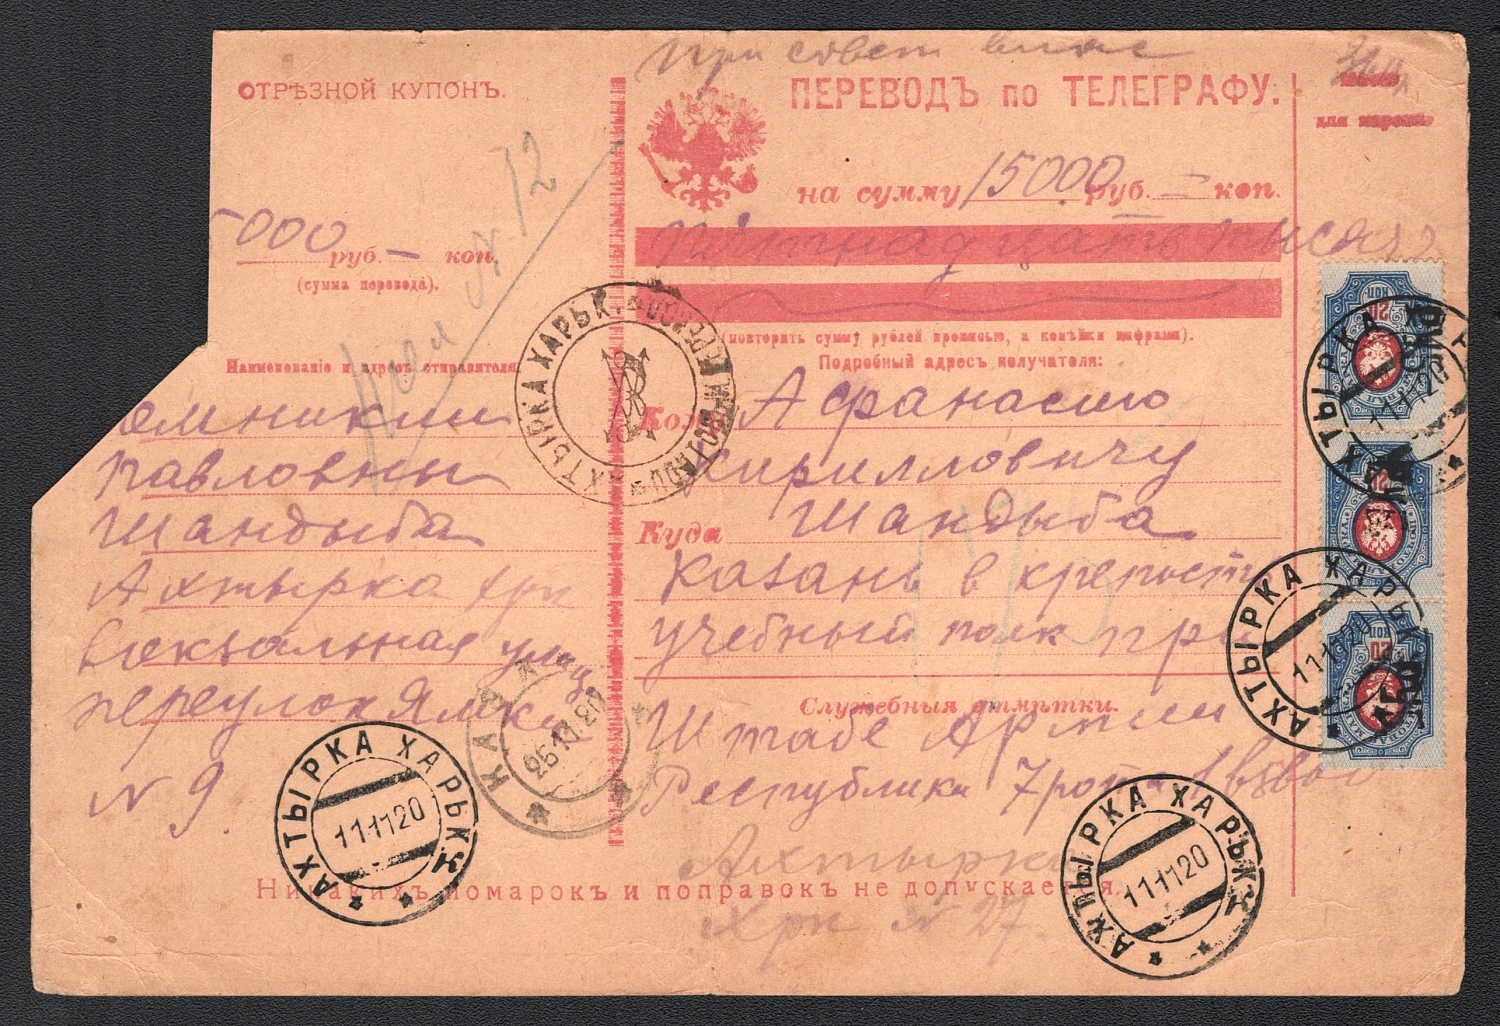 при совет влас
ОТРѢЗНОЙ КУПОНЪ.
ПЕРЕВОДЪ по ТЕЛЕГРАФУ.
N 72
на сумму 15000 руб. = коп.
Пятнадцать тысяч
5000 руб. — коп.
(сумма перевода).
(повторить сумму рублей прописью, а копѣйки цифрами).
Подробный адресъ получателя:
Наименованіе и адресъ отправителя
омникии
Павловны
Шандыба
Ахтырка хрк
вокзальная улиц
переулок Ямск
N 9.
Кому Афанасию
Кирилловичу
Куда Шандыба
Казань в крепости
учебный полк при
Служебныя отмѣтки.
Штабе Армии
Республики 7 рота 1 взвод
Ахтырка
Никакихъ помарокъ и поправокъ не допускается.
Хрк N 27.
АХТЫРКА ХАРЬК.
20 КОП
20 КОП
20 КОП
АХТЫРКА ХАРЬК
11 11 20
АХТЫРКА ХАРЬК
11 11 20
КАЗА
26 11 20
АХТЫРКА ХАРЬК
11 11 20
АХТЫРКА ХАРЬК
11 11 20